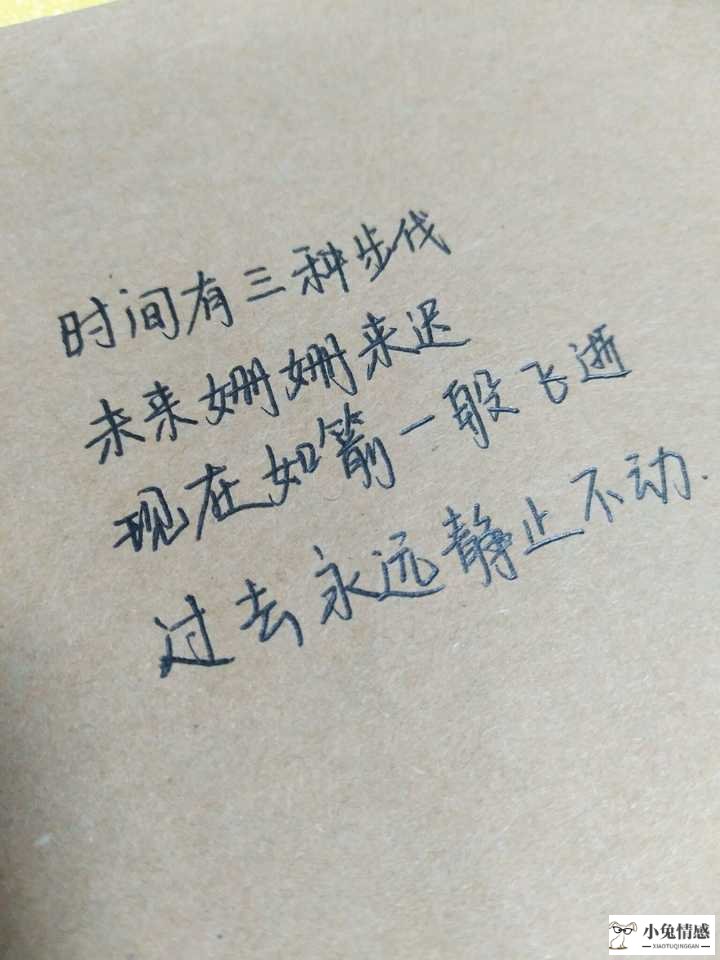 时间有三种步伐
未来姗姗来迟
现在如箭一般飞逝
过去永远静止不动.
小兔情感
XIAOTUQINGGAN